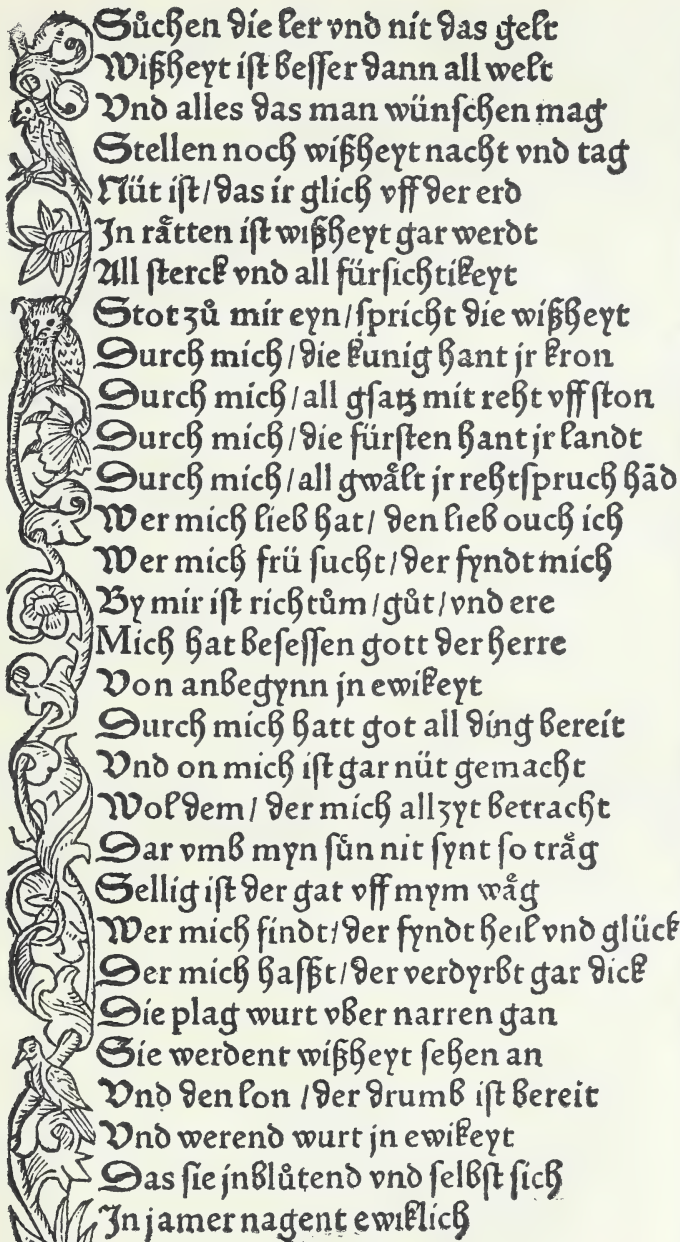 Sůchen die ler vnd nit das gelt
Wißheyt ist besser dann all welt
Vnd alles das man wünschen mag
Stellen noch wißheyt nacht vnd tag
Nüt ist / das ir glich vff der erd
In råtten ist wißheyt gar werdt
All sterck vnd all fürsichtikeyt
Stot zů mir eyn / spricht die wißheyt
Durch mich / die kunig hant jr kron
Durch mich / all gsatz mit reht vff ston
Durch mich / die fürsten hant jr landt
Durch mich / all gwålt jr rehtspruch hãd
Wer mich lieb hat / den lieb ouch ich
Wer mich frü sucht / der fyndt mich
By mir ist richtům / gůt / vnd ere
Mich hat besessen gott der herre
Von anbegynn jn ewikeyt
Durch mich hatt got all ding bereit
Vnd on mich ist gar nüt gemacht
Wol dem / der mich allzyt betracht
Dar vmb myn sün nit synt so tråg
Sellig ist der gat vff mym wåg
Wer mich findt / der fyndt heil vnd glück
Der mich hasszt / der verdyrbt gar dick
Die plag wurt vber narren gan
Sie werdent wißheyt sehen an
Vnd den lon / der drumb ist bereit
Vnd werend wurt jn ewikeyt
Das sie jnblůtend vnd selbst sich
In jamer nagent ewiklich